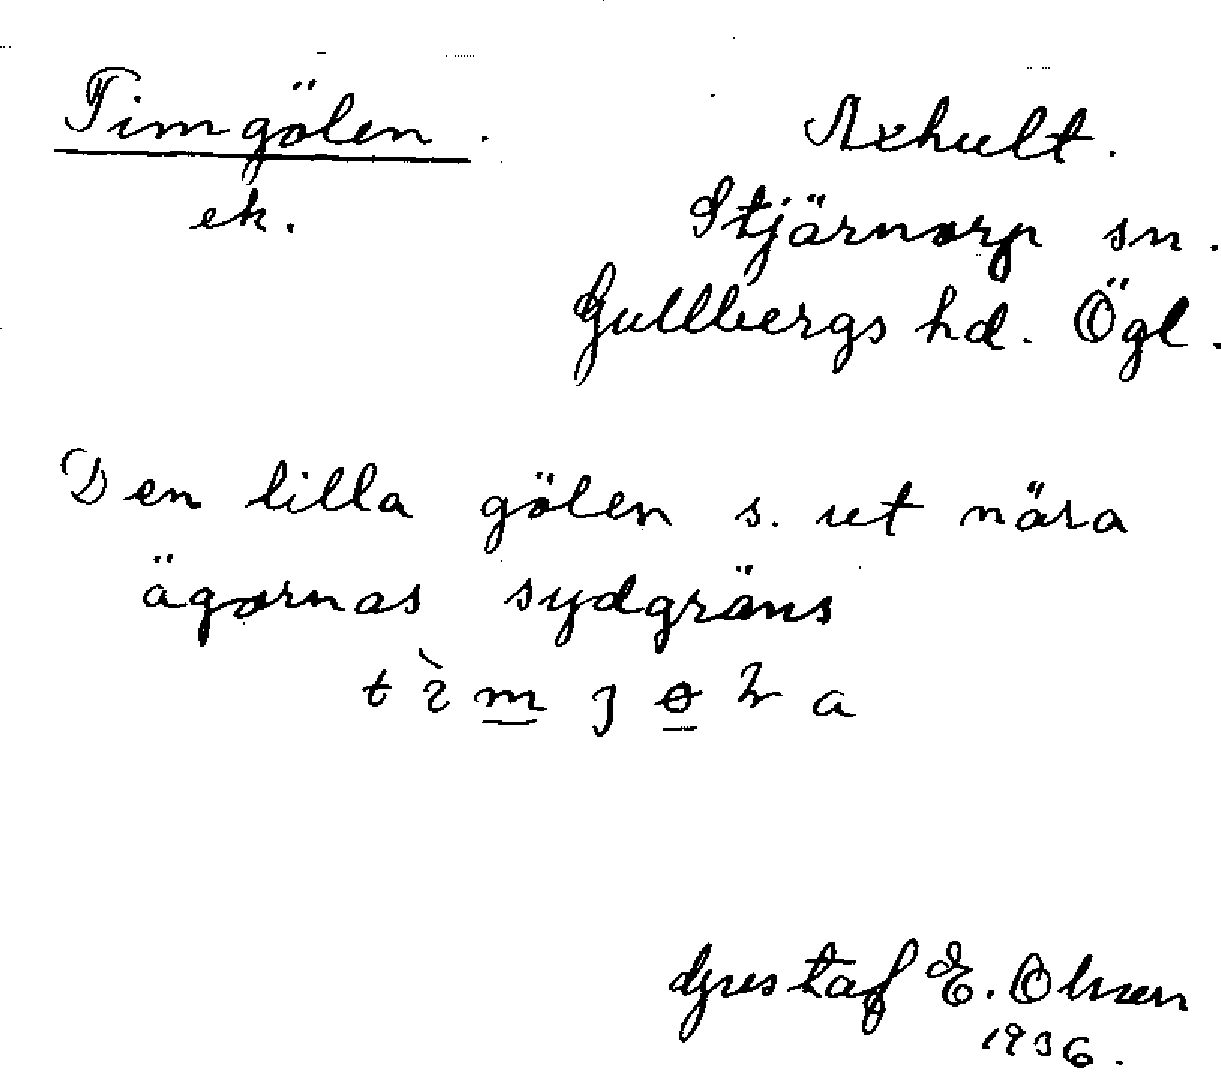 Timgölen. Axhult.
ek. Stjärnorp sn.
Gullbergs hd. Ögl.
Den lilla gölen s. ut nära
ägornas sydgräns
Gustaf E. Olsson
1936.